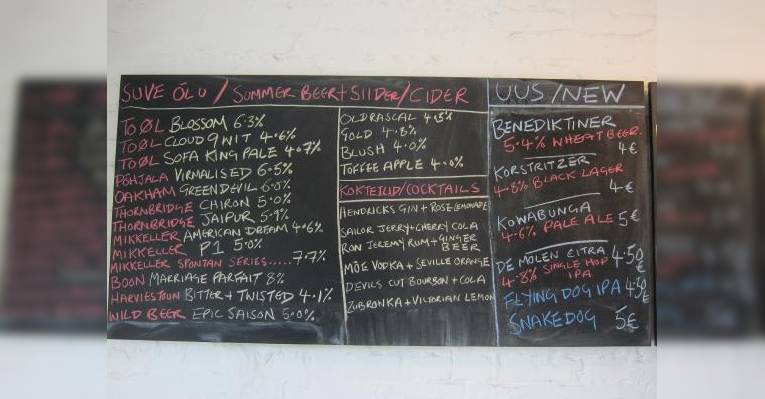 SUVE ÕLU / SUMMER BEER + SIIDER/CIDER
TO ØL BLOSSOM 6.3%
TO ØL CLOUD 9 WIT 4.6%
TO ØL SOFA KING PALE 4.7%
PÕHJALA VIRMALISED 6.5%
OAKHAM GREEN DEVIL 6.0%
THORNBRIDGE CHIRON 5.0%
THORNBRIDGE JAIPUR 5.9%
MIKKELLER AMERICAN DREAM 4.6%
MIKKELLER P1 5.0%
MIKKELLER SPONTAN SERIES.....7.7%
BOON MARRIAGE PARFAIT 8%
HARVIESTOUN BITTER + TWISTED 4.1%
WILD BEER EPIC SAISON 5.0%
OLD RASCAL 4.5%
GOLD 4.8%
BLUSH 4.0%
TOFFEE APPLE 4.0%
KOKTEILID/COCKTAILS
HENDRICKS GIN + ROSE LEMONADE
SAILOR JERRY + CHERRY COLA
RON JEREMY RUM + GINGER
BEER
MÕE VODKA + SEVILLE ORANGE
DEVILS CUT BOURBON + COLA
ZUBRONKA + VICTORIAN LEMON
UUS/NEW
BENEDIKTINER
5.4% WHEAT BEER.
4€
KORSTRITZER
4.8% BLACK LAGER
4€
KOWABUNGA
4.6% PALE ALE 5€
DE MOLEN CITRA 4.50
4.8% SINGLE HOP €
IPA
FLYING DOG IPA 4.50€
SNAKEDOG 5€